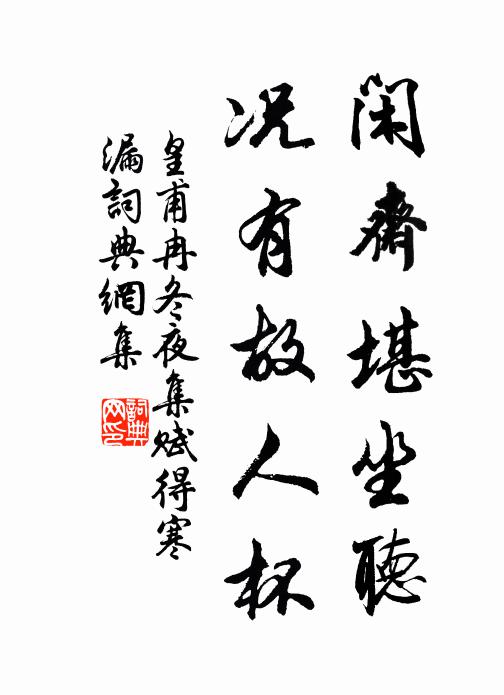 闲齋堪坐聽
况有故人杯
皇甫冉冬夜集賦得寒
漏詞典網集
詞典
网印